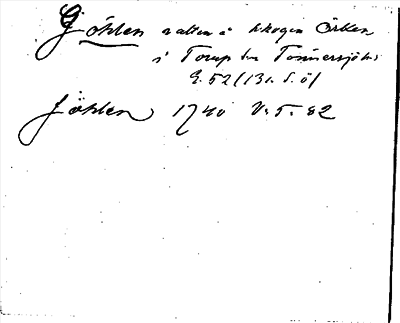 Göhlen vatten å skogen Örken
i Torup sn Tönnersjö hd
G. 52 (13 a. S. ö)
Göhlen 1740 V. T. 82